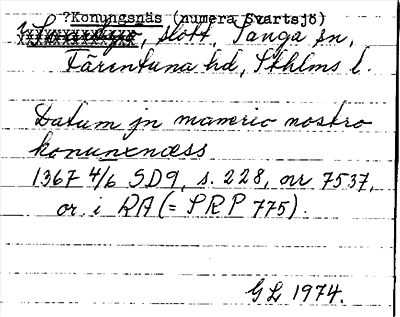 ?Konungsnäs (numera Svartsjö)
slott, Sånga sn,
Färentuna hd, Sthlms l.
Datum jn manerio nostro
konunxnæss
1367 4/6 SD9, s. 228, nr 7537,
or i RA (= SRP 775).
GL 1974.